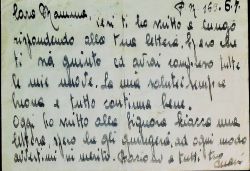 Cara Mamma, ieri ti ho scritto a lungo
rispondendo alla tua lettera. Spero che
ti sia giunto ed avrai compreso tutte
le mie nuove. La mia salute è sempre
buona e tutto continua bene.
Oggi ho scritto alla Signora
lettera, spero che gli giungerà, ad ogni modo
avvertimi in merito. Bacioni a tutti, tuo